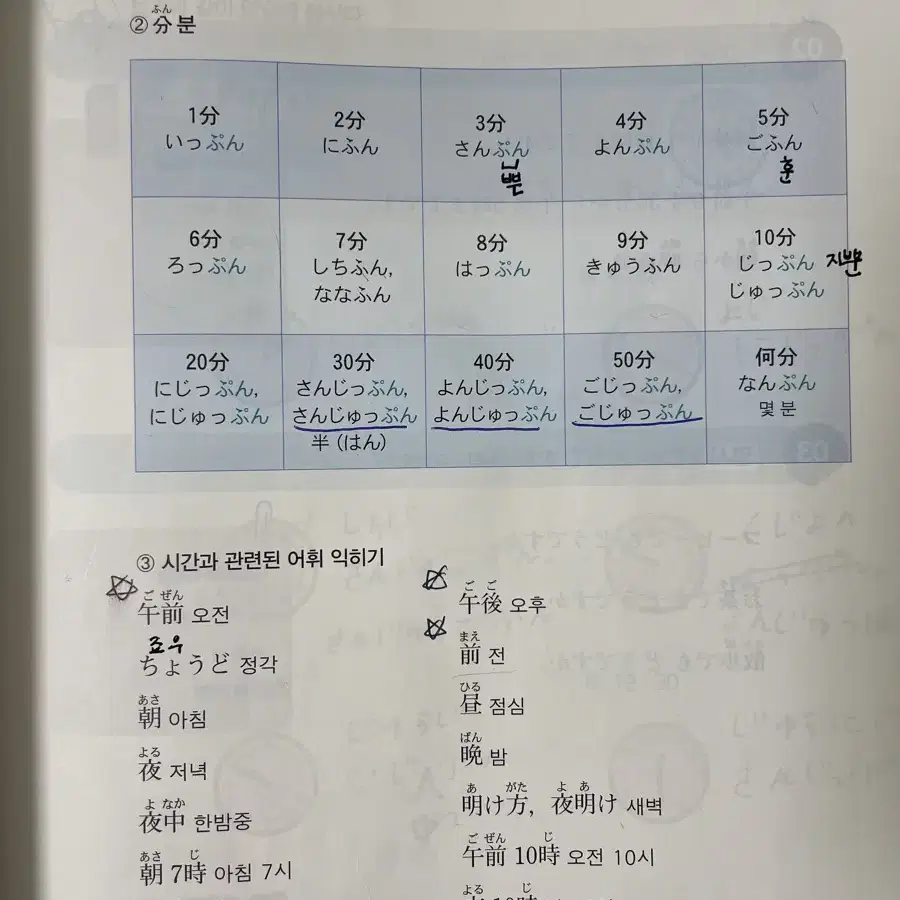 ② 分 분
ふん
1分
いっぷん
2分
にふん
3分
さんぷん
뿐
4分
よんぷん
5分
ごふん
훈
6分
ろっぷん
7分
しちふん,
ななふん
8分
はっぷん
9分
きゅうふん
10分
じっぷん
じゅっぷん
20分
にじっぷん,
にじゅっぷん
30分
さんじっぷん,
さんじゅっぷん
半 (はん)
40分
よんじっぷん,
よんじゅっぷん
50分
ごじっぷん,
ごじゅっぷん
何分
なんぷん
몇 분
③ 시간과 관련된 어휘 익히기
ご ぜん
午前 오전
죠우
ちょうど 정각
あさ
朝 아침
よる
夜 저녁
よ なか
夜中 한밤중
あさ じ
朝 7時 아침 7시
ご ご
午後 오후
まえ
前 전
ひる
昼 점심
ばん
晩 밤
あ がた よ あ
明け方, 夜明け 새벽
ご ぜん じ
午前 10時 오전 10시
よる じ